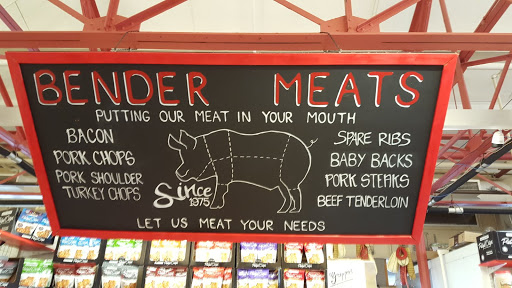 BENDER MEATS
PUTTING OUR MEAT IN YOUR MOUTH
BACON
PORK CHOPS
PORK SHOULDER
TURKEY CHOPS
Since
1975
SPARE RIBS
BABY BACKS
PORK STEAKS
BEEF TENDERLOIN
LET US MEAT YOUR NEEDS